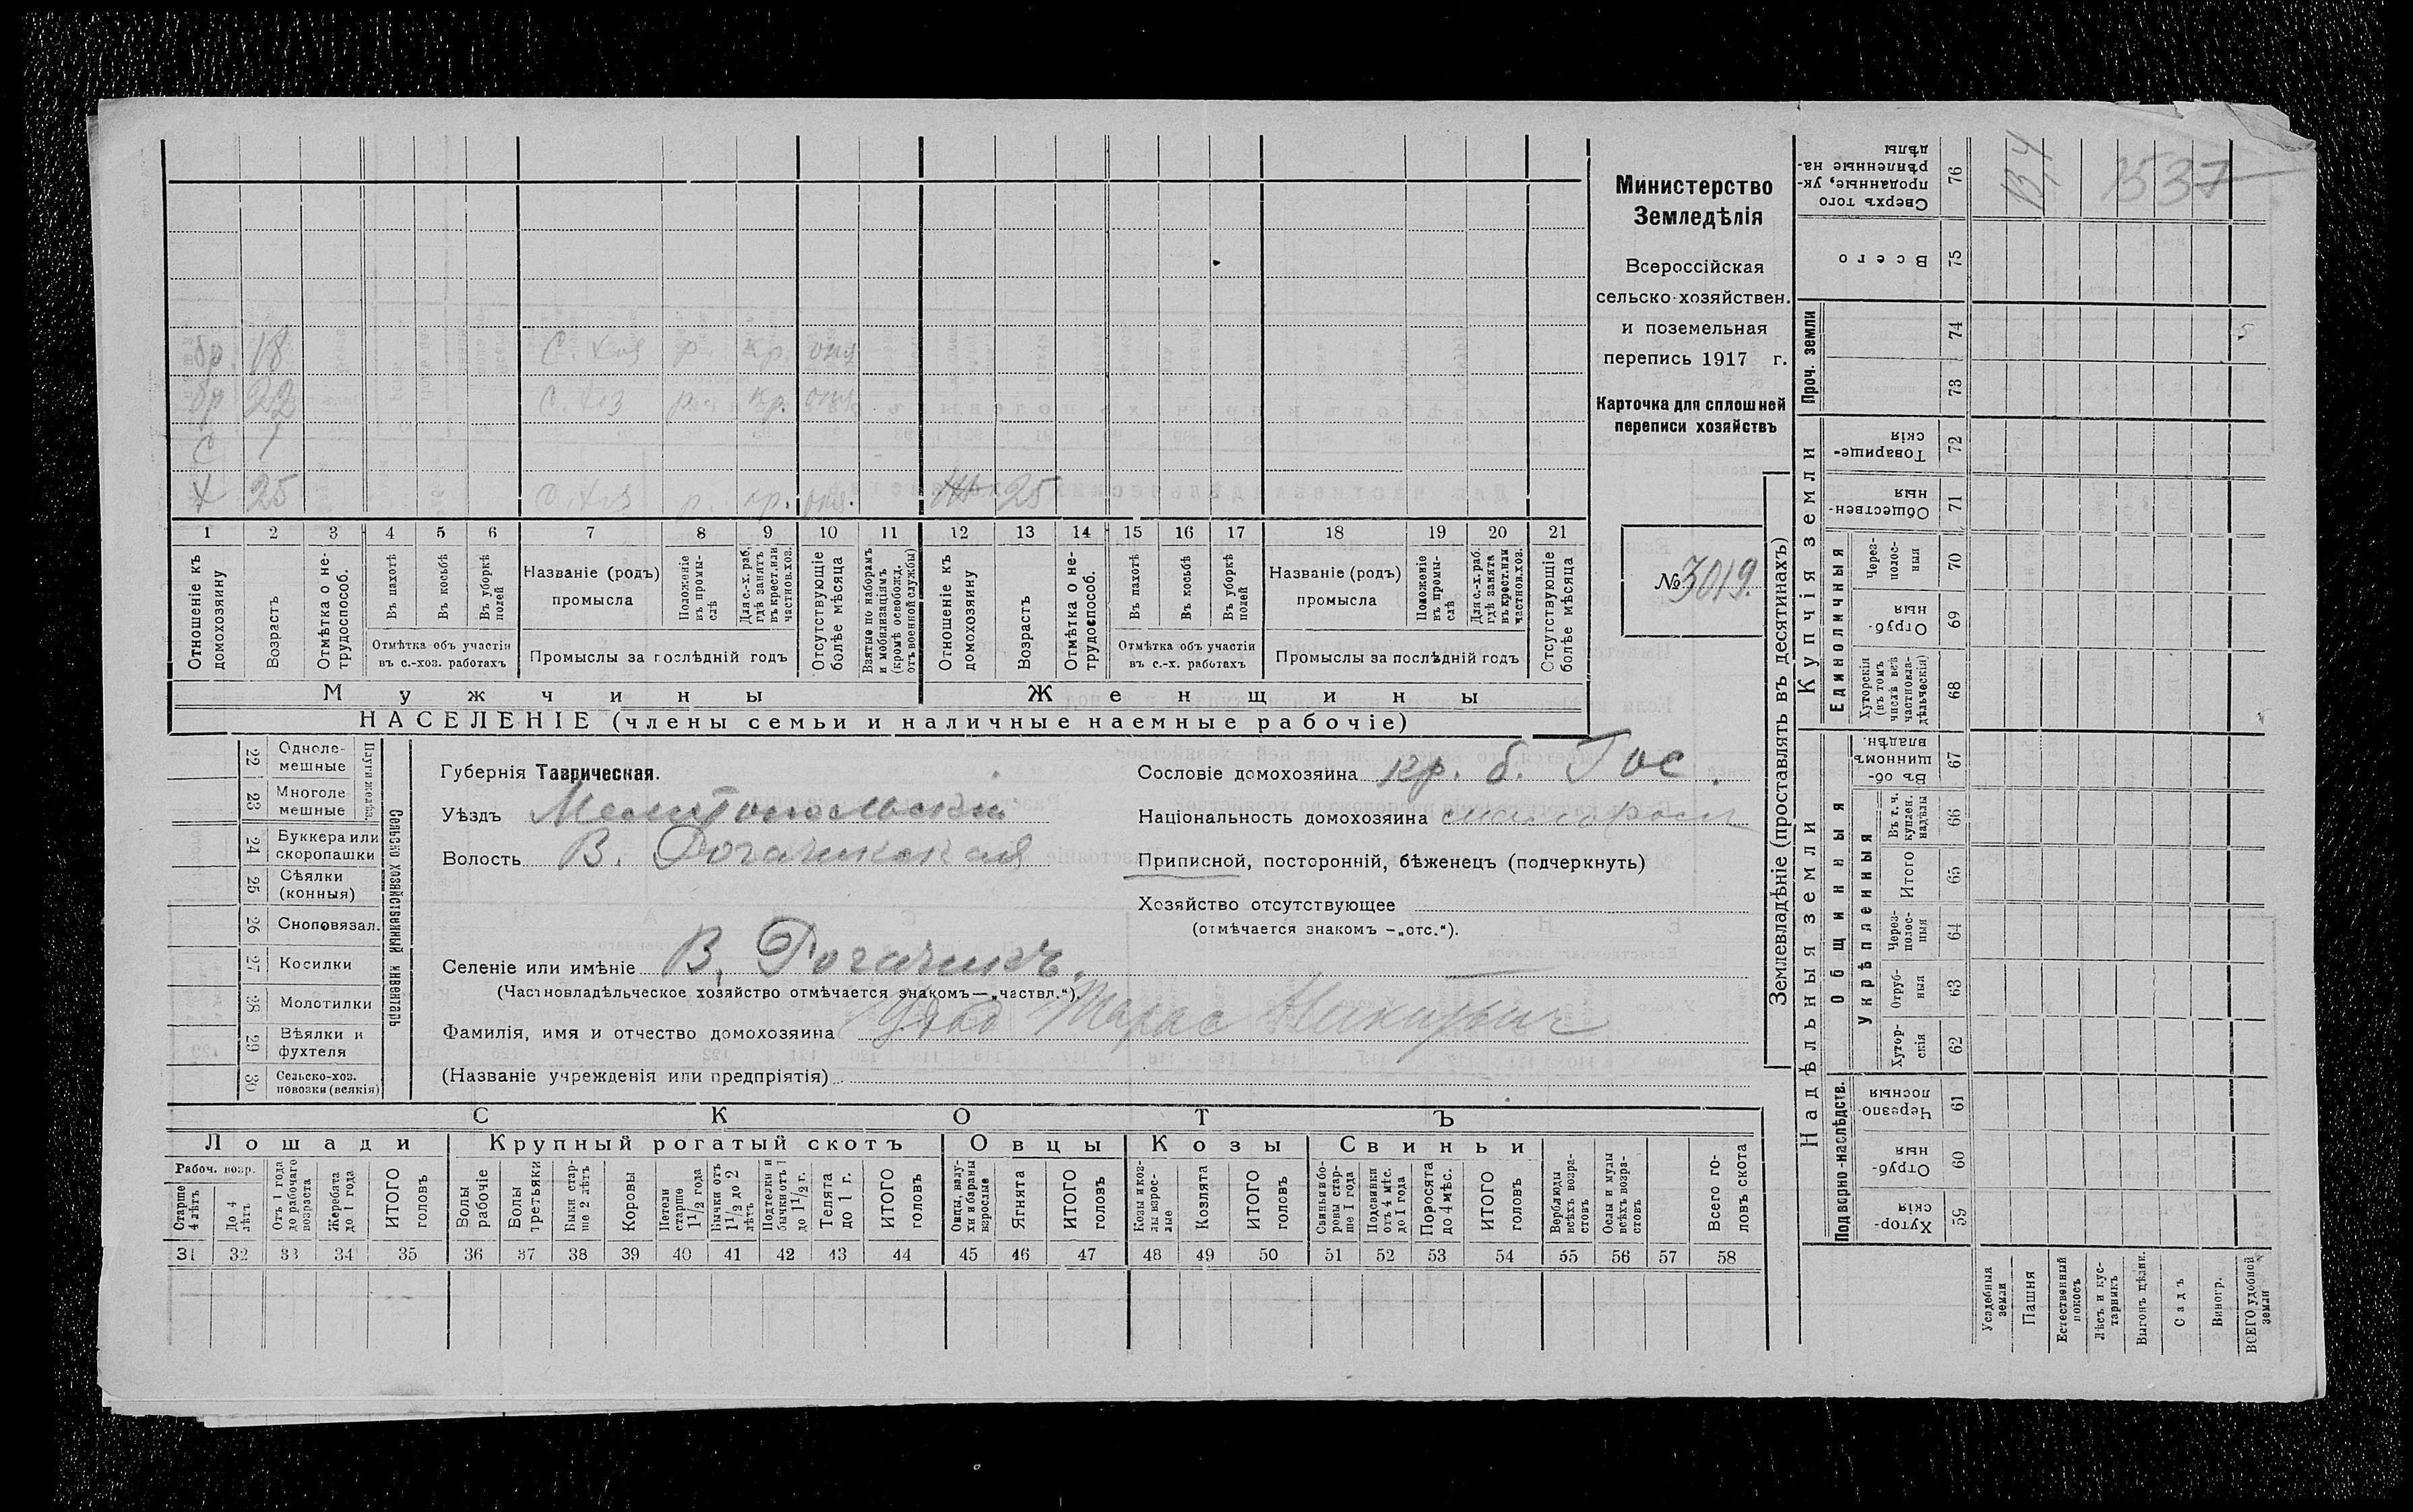 Министерство
Земледѣлія
Всероссійская
сельско-хозяйствен.
и поземельная
перепись 1917 г.
Карточка для сплошней
переписи хозяйствъ
№ 3019.
бр. 18 С. хоз р. кр. отп
бр 22 С. хоз р. кр. отп.
С 1
Х 25 С. хоз р. кр. отп. Ж 25
1 2 3 4 5 6 7 8 9 10 11 12 13 14 15 16 17 18 19 20 21
Отношеніе къ домохозяину
Возрастъ
Отмѣтка о нетрудоспособ.
Въ пахотѣ
Въ косьбѣ
Въ уборкѣ полей
Отмѣтка объ участіи
въ с.-хоз. работахъ
Названіе (родъ)
промысла
Положеніе въ промыслѣ
Для с.-х. раб. гдѣ занятъ въ крест. или частнов. хоз.
Промыслы за послѣдній годъ
Отсутствующіе болѣе мѣсяца
Взятые по наборамъ и мобилизаціямъ (кромѣ освобожд. отъ военной службы)
Отношеніе къ домохозяину
Возрастъ
Отмѣтка о нетрудоспособ.
Въ пахотѣ
Въ косьбѣ
Въ уборкѣ полей
Отмѣтка объ участіи
въ с.-х. работахъ
Названіе (родъ)
промысла
Положеніе въ промыслѣ
Для с.-х. раб. гдѣ занята въ крест. или частнов. хоз.
Промыслы за послѣдній годъ
Отсутствующіе болѣе мѣсяца
Мужчины
Женщины
НАСЕЛЕНІЕ (члены семьи и наличные наемные рабочіе)
Сельско хозяйственный инвентарь
Плуги желѣз.
22 Однолемешные
23 Многоле мешные
24 Буккера или скоропашки
25 Сѣялки (конныя)
26 Сноповязал.
27 Косилки
28 Молотилки
29 Вѣялки и фухтеля
30 Сельско-хоз. повозки (всякія)
Губернія Таврическая.
Уѣздъ Мелитопольский
Волость В. Рогачикская
Селеніе или имѣніе В. Рогачикъ.
(Частновладѣльческое хозяйство отмѣчается знакомъ—„частвл.“).
Фамилія, имя и отчество домохозяина Тарас Никитьич
(Названіе учрежденія или предпріятія)
Сословіе домохозяина кр. б. Гос.
Національность домохозяина малоросс
Приписной, посторонній, бѣженецъ (подчеркнуть)
Хозяйство отсутствующее
(отмѣчается знакомъ –„отс.“).
СКОТЪ
Лошади Крупный рогатый скотъ Овцы Козы Свиньи
Рабоч. возр.
Старше 4 лѣтъ
До 4 лѣтъ
Отъ 1 года до рабочаго возраста
Жеребята до 1 года
ИТОГО головъ
Волы рабочіе
Волы третьяки
Быки старше 2 лѣтъ
Коровы
Нетели старше 1 1/2 года
Бычки отъ 1 1/2 до 2 лѣтъ
Подтелки и бычки отъ 1 до 1 1/2 г.
Телята до 1 г.
ИТОГО головъ
Овцы, валухи и бараны взрослые
Ягнята
ИТОГО головъ
Козы и козлы взрослые
Козлята
ИТОГО головъ
Свиньи и боровы старше 1 года
Подсвинки отъ 4 мѣс. до 1 года
Поросята до 4 мѣс.
ИТОГО головъ
Верблюды всѣхъ возрастовъ
Ослы и мулы всѣхъ возрастовъ
Всего головъ скота
31 32 33 34 35 36 37 38 39 40 41 42 43 44 45 46 47 48 49 50 51 52 53 54 55 56 57 58
Землевладѣніе (проставлять въ десятинахъ)
Надѣльныя земли
Купчія земли
Проч. земли
Подворно-наслѣдств.
Общинныя
Укрѣпленныя
Единоличныя
Сверхъ того проданные, укрѣпленные надѣлы 76
Всего 75
74
73
Товарищескія 72
Общественныя 71
Черезполосныя 70
Отрубныя 69
Хуторскія (въ томъ числѣ всѣ частновладѣльческія) 68
Въ общинномъ владѣн. 67
Въ т. ч. куплен. надѣлы 66
Итого 65
Черезполосныя 64
Отрубныя 63
Хуторскія 62
Черезполосныя 61
Отрубныя 60
Хуторскія 59
Усадебныя земли
Пашня
Естественный покосъ
Лѣсъ и кустарникъ
Выгонъ цѣлин.
Садъ
Виногр.
ВСЕГО удобной земли
1537